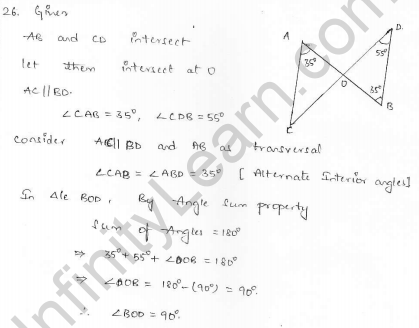 26. Given
AB and CD intersect
let them intersect at O
AC||BD.
∠CAB = 35°, ∠CDB = 55°
consider AC||BD and AB as transversal
∠CAB = ∠ABD = 35° [Alternate Interior angles]
In Δle BOD, By Angle Sum property
Sum of Angles = 180°
⇒ 35° + 55° + ∠DOB = 180°
⇒ ∠DOB = 180° - (90°) = 90°.
∴ ∠BOD = 90°.
A
D.
35°
55°
O
35°
B
C
InfinityLearn.com